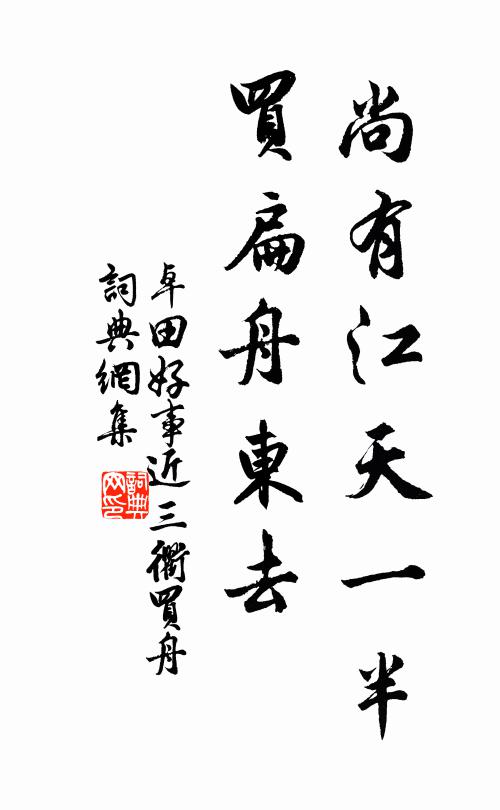 尚有江天一半
買扁舟東去
卓田好事近三衢買舟
詞典網集
詞典网印